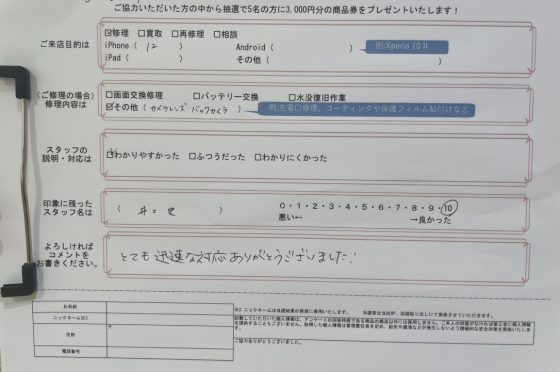 ご協力いただいた方の中から抽選で5名の方に3,000円分の商品券をプレゼントいたします！
ご来店目的は
☑修理 □買取 □再修理 □相談
iPhone（ 12 ） Android（ ） 例:Xperia 10 Ⅱ
iPad（ ） その他（ ）
（ご修理の場合）
修理内容は
□画面交換修理 □バッテリー交換 □水没復旧作業
☑その他（ カメラレンズ・バックカメラ 例:充電口修理、コーティングや保護フィルム貼付けなど
スタッフの
説明・対応は
☑わかりやすかった □ふつうだった □わかりにくかった
印象に残った
スタッフ名は
（ 井上 ） 0・1・2・3・4・5・6・7・8・9・10
悪い← →良かった
よろしければ
コメントを
お書きください。
とても迅速な対応ありがとうございました!
お名前
ニックネーム※2
住所
〒
電話番号
※2 ニックネームは当選結果の発表に使用いたします。
ご協力ありがとうございました。